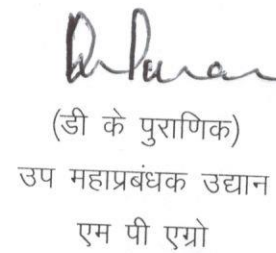 (डी के पुराणिक)
उप महाप्रबंधक उद्यान
एम पी एग्रो